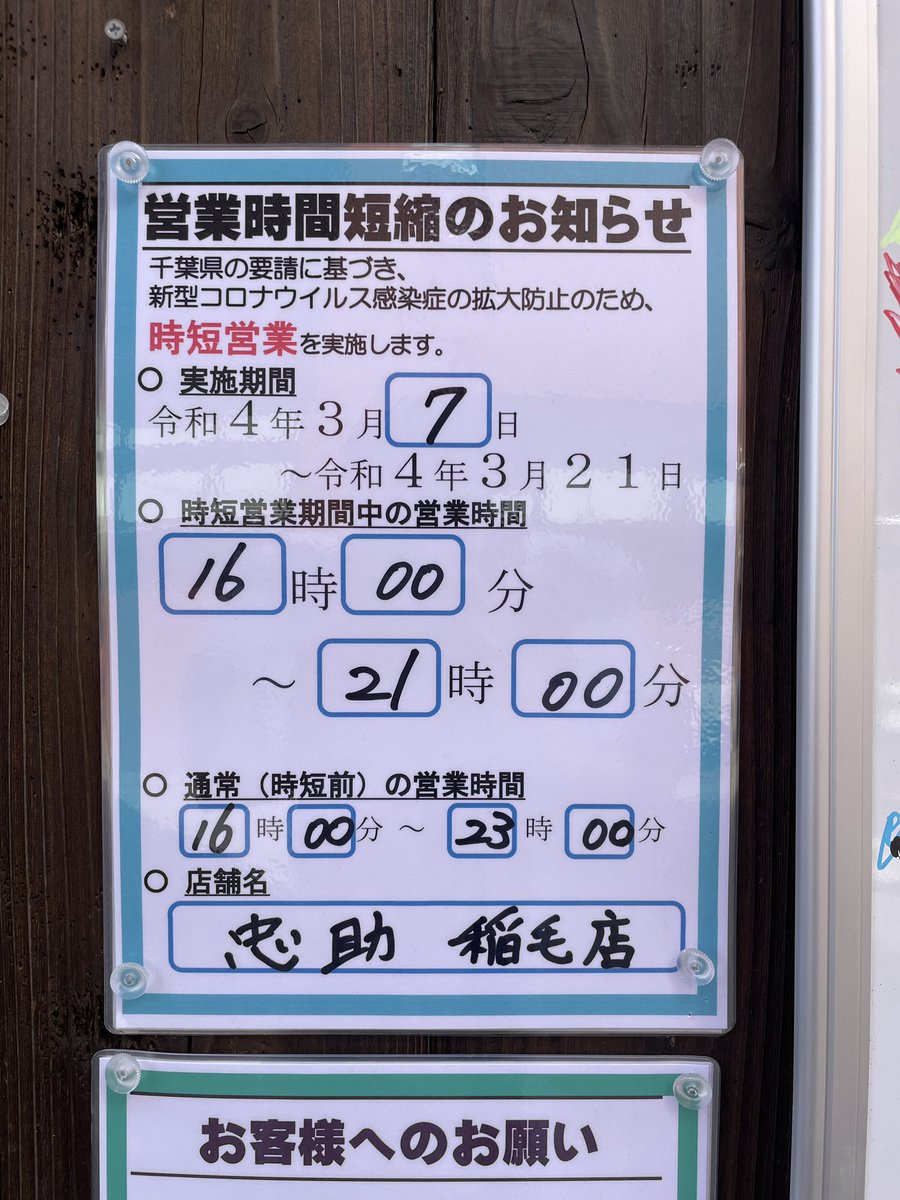 営業時間短縮のお知らせ
千葉県の要請に基づき、
新型コロナウイルス感染症の拡大防止のため、
時短営業を実施します。
○ 実施期間
令和４年３月 7 日
～令和４年３月２１日
○ 時短営業期間中の営業時間
16 時 00 分
～ 21 時 00 分
○ 通常（時短前）の営業時間
16 時 00 分 ～ 23 時 00 分
○ 店舗名
忠助 稲毛店
お客様へのお願い